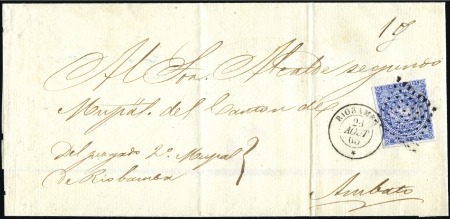 Al Sor. Alcalde segundo
Mupál. del Canton de
Del juzgado 2º. Mupal
de Riobamba
RIOBAMBA
23
AOUT
65
Ambato